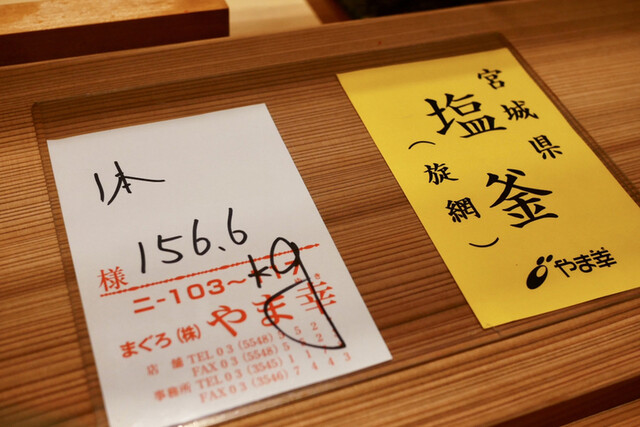 1本
156.6
kg
様
ニ-103~
まぐろ(株)やま幸
店舗 TEL03(5548)
FAX03(5548)
事務所 TEL03(3545)
FAX03(3546)7443
宮城県
塩釜
(旋網)
やま幸